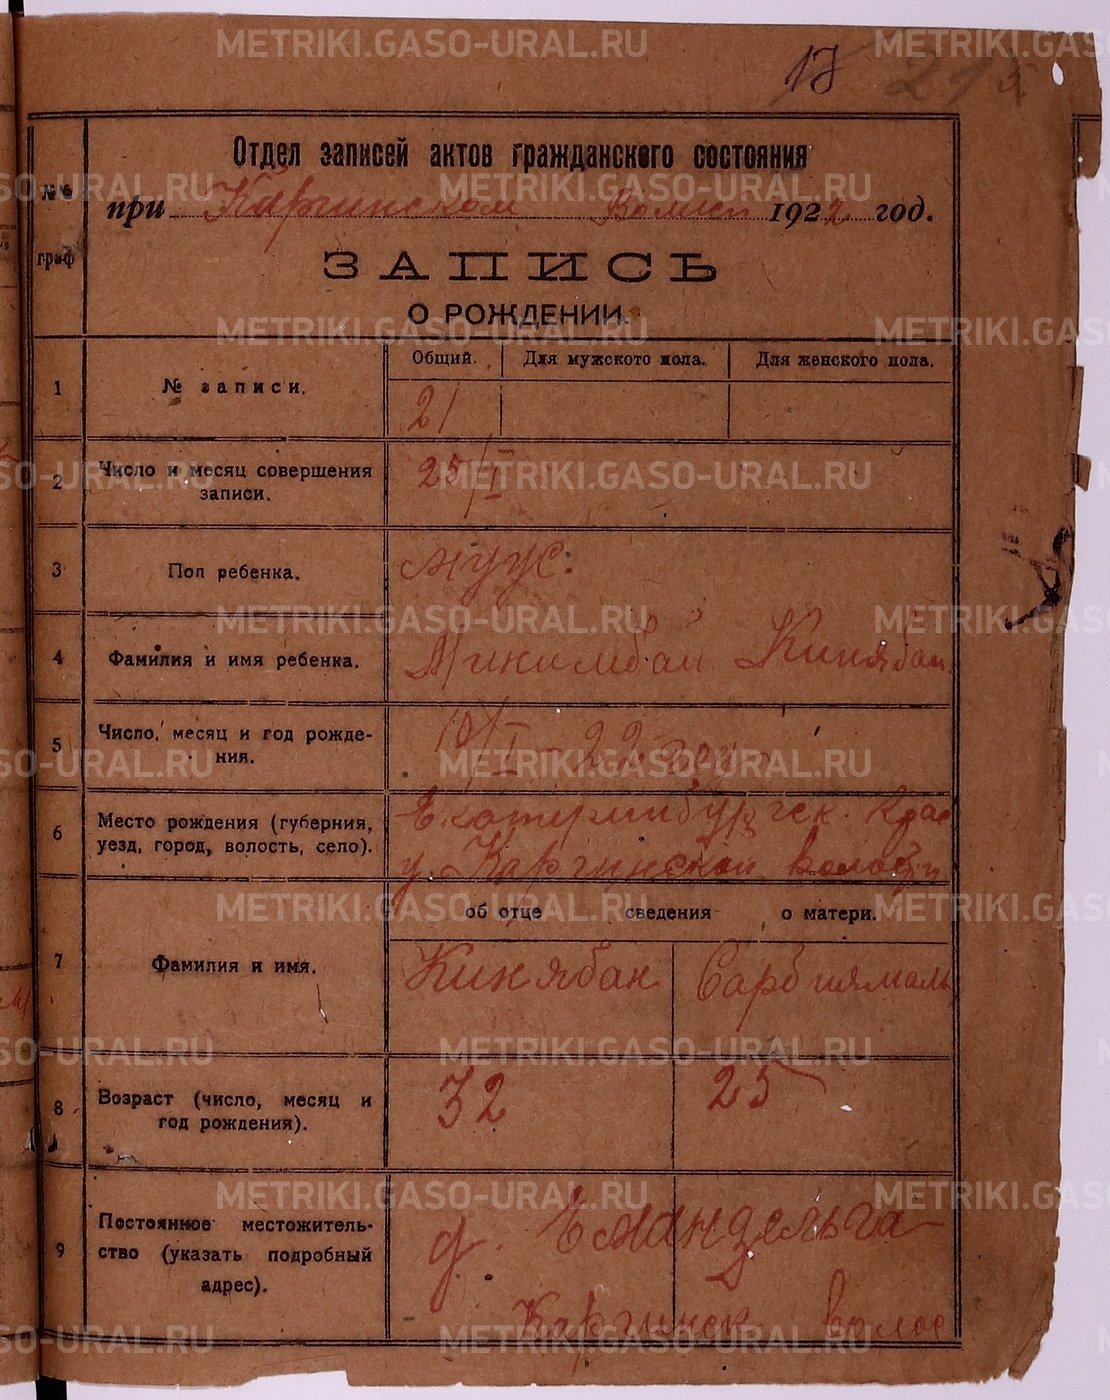 17
Отдел записей актов гражданского состояния
№№ граф
при Каргинском Волисп 1922 год.
ЗАПИСЬ
О РОЖДЕНИИ.
1 № записи. Общий. Для мужского пола. Для женского пола.
21
2 Число и месяц совершения записи. 25/I
3 Пол ребенка. муж.
4 Фамилия и имя ребенка. Кинябаи
5 Число, месяц и год рожде-
ния. /I-22 год
6 Место рождения (губерния,
уезд, город, волость, село). Екатеринбургск. Крас
у. Каргинской волости
об отце сведения о матери.
7 Фамилия и имя. Кинябаи Сарбиямаль
8 Возраст (число, месяц и
год рождения). 32 25
9 Постоянное местожитель-
ство (указать подробный
адрес). д.
Каргинск волос
METRIKI.GASO-URAL.RU